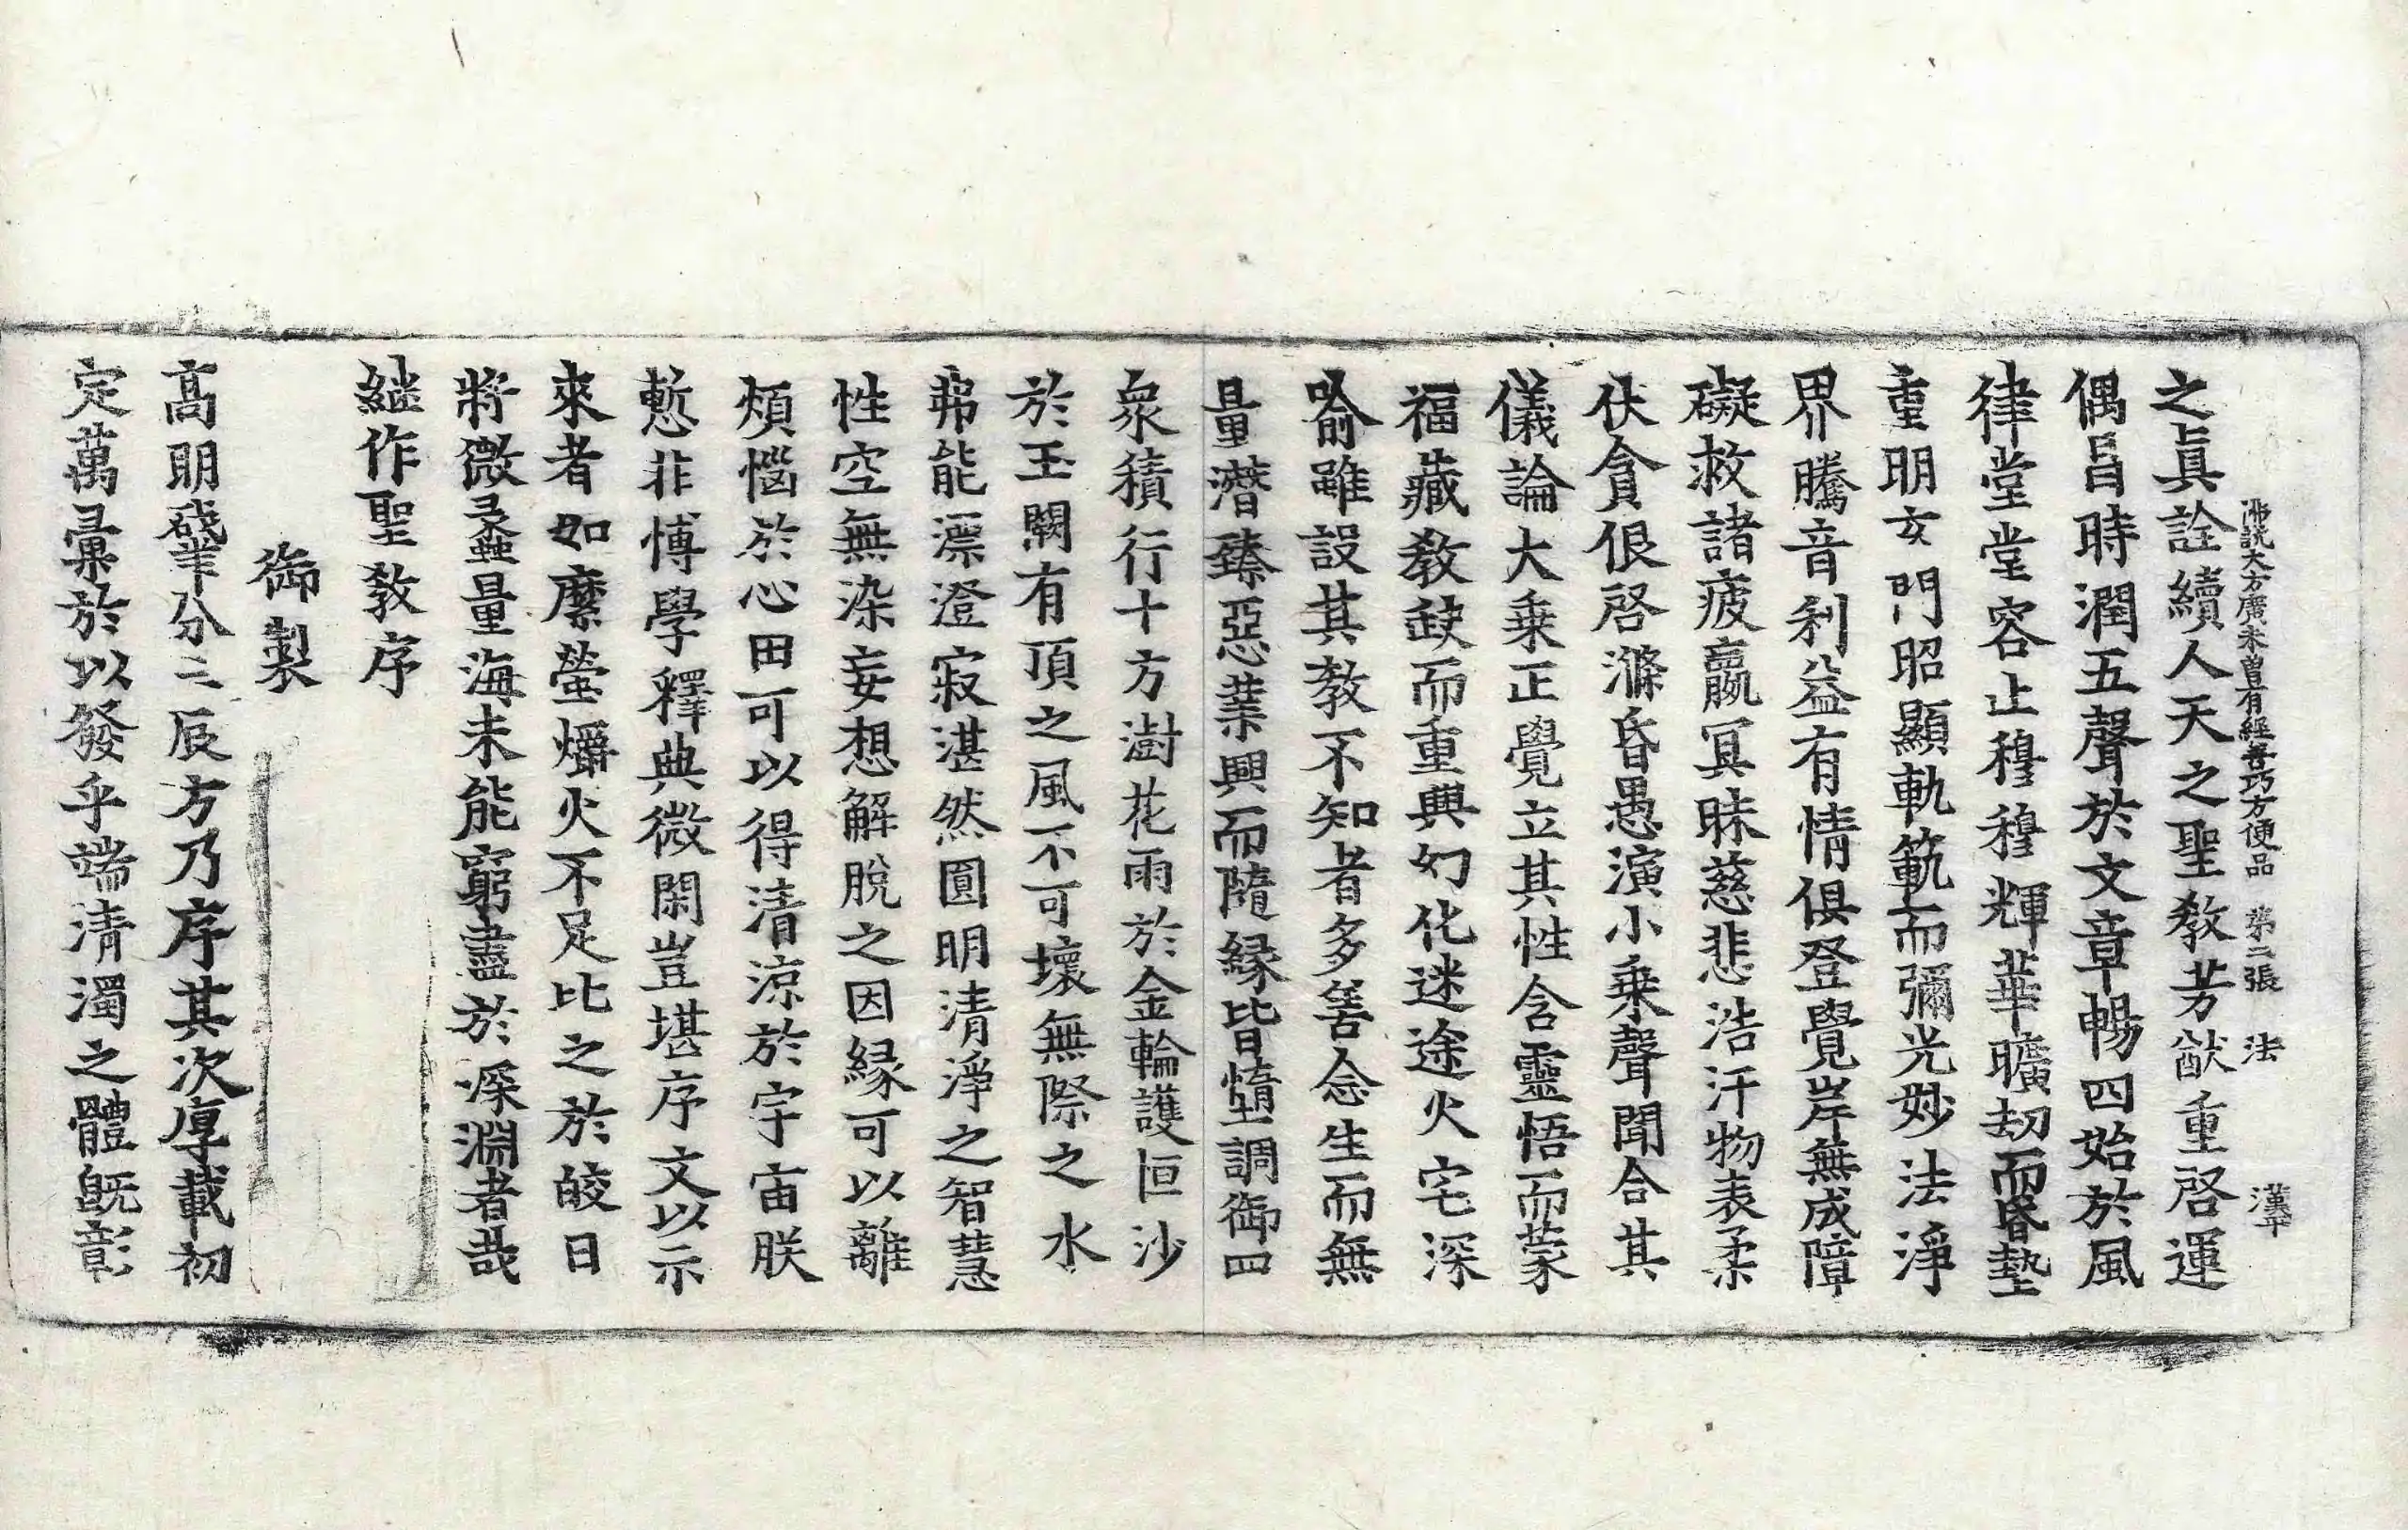 佛說大方廣未曾有經善巧方便品 第二張 法 漢平
之眞詮續人天之聖教芳猷重啓運
偶昌時潤五聲於文章暢四始於風
律堂堂容止穆穆輝華曠劫而昏墊
重明玄門昭顯軌範而彌光妙法淨
界騰音利益有情俱登覺岸無成障
礙救諸疲羸冥昧慈悲浩汗物表柔
伏貪佷啓滌昏愚演小乘聲聞合其
儀論大乘正覺立其性含靈悟而蒙
福藏教缺而重興幻化迷途火宅深
喻雖設其教不知者多善念生而無
量潛臻惡業興而隨緣皆墮調御四
衆積行十方澍花雨於金輪護恒沙
於玉闕有頂之風不可壞無際之水
弗能漂澄寂湛然圓明清淨之智慧
性空無染妄想解脫之因緣可以離
煩惱於心田可以得清涼於宇宙朕
慙非博學釋典微閑豈堪序文以示
來者如縻螢爝火不足比之於皎日
將微蠡量海未能窮盡於深淵者哉
繼作聖教序
御製
高明肇分二辰方乃序其次厚載初
定萬彙於以發乎端清濁之體旣彰